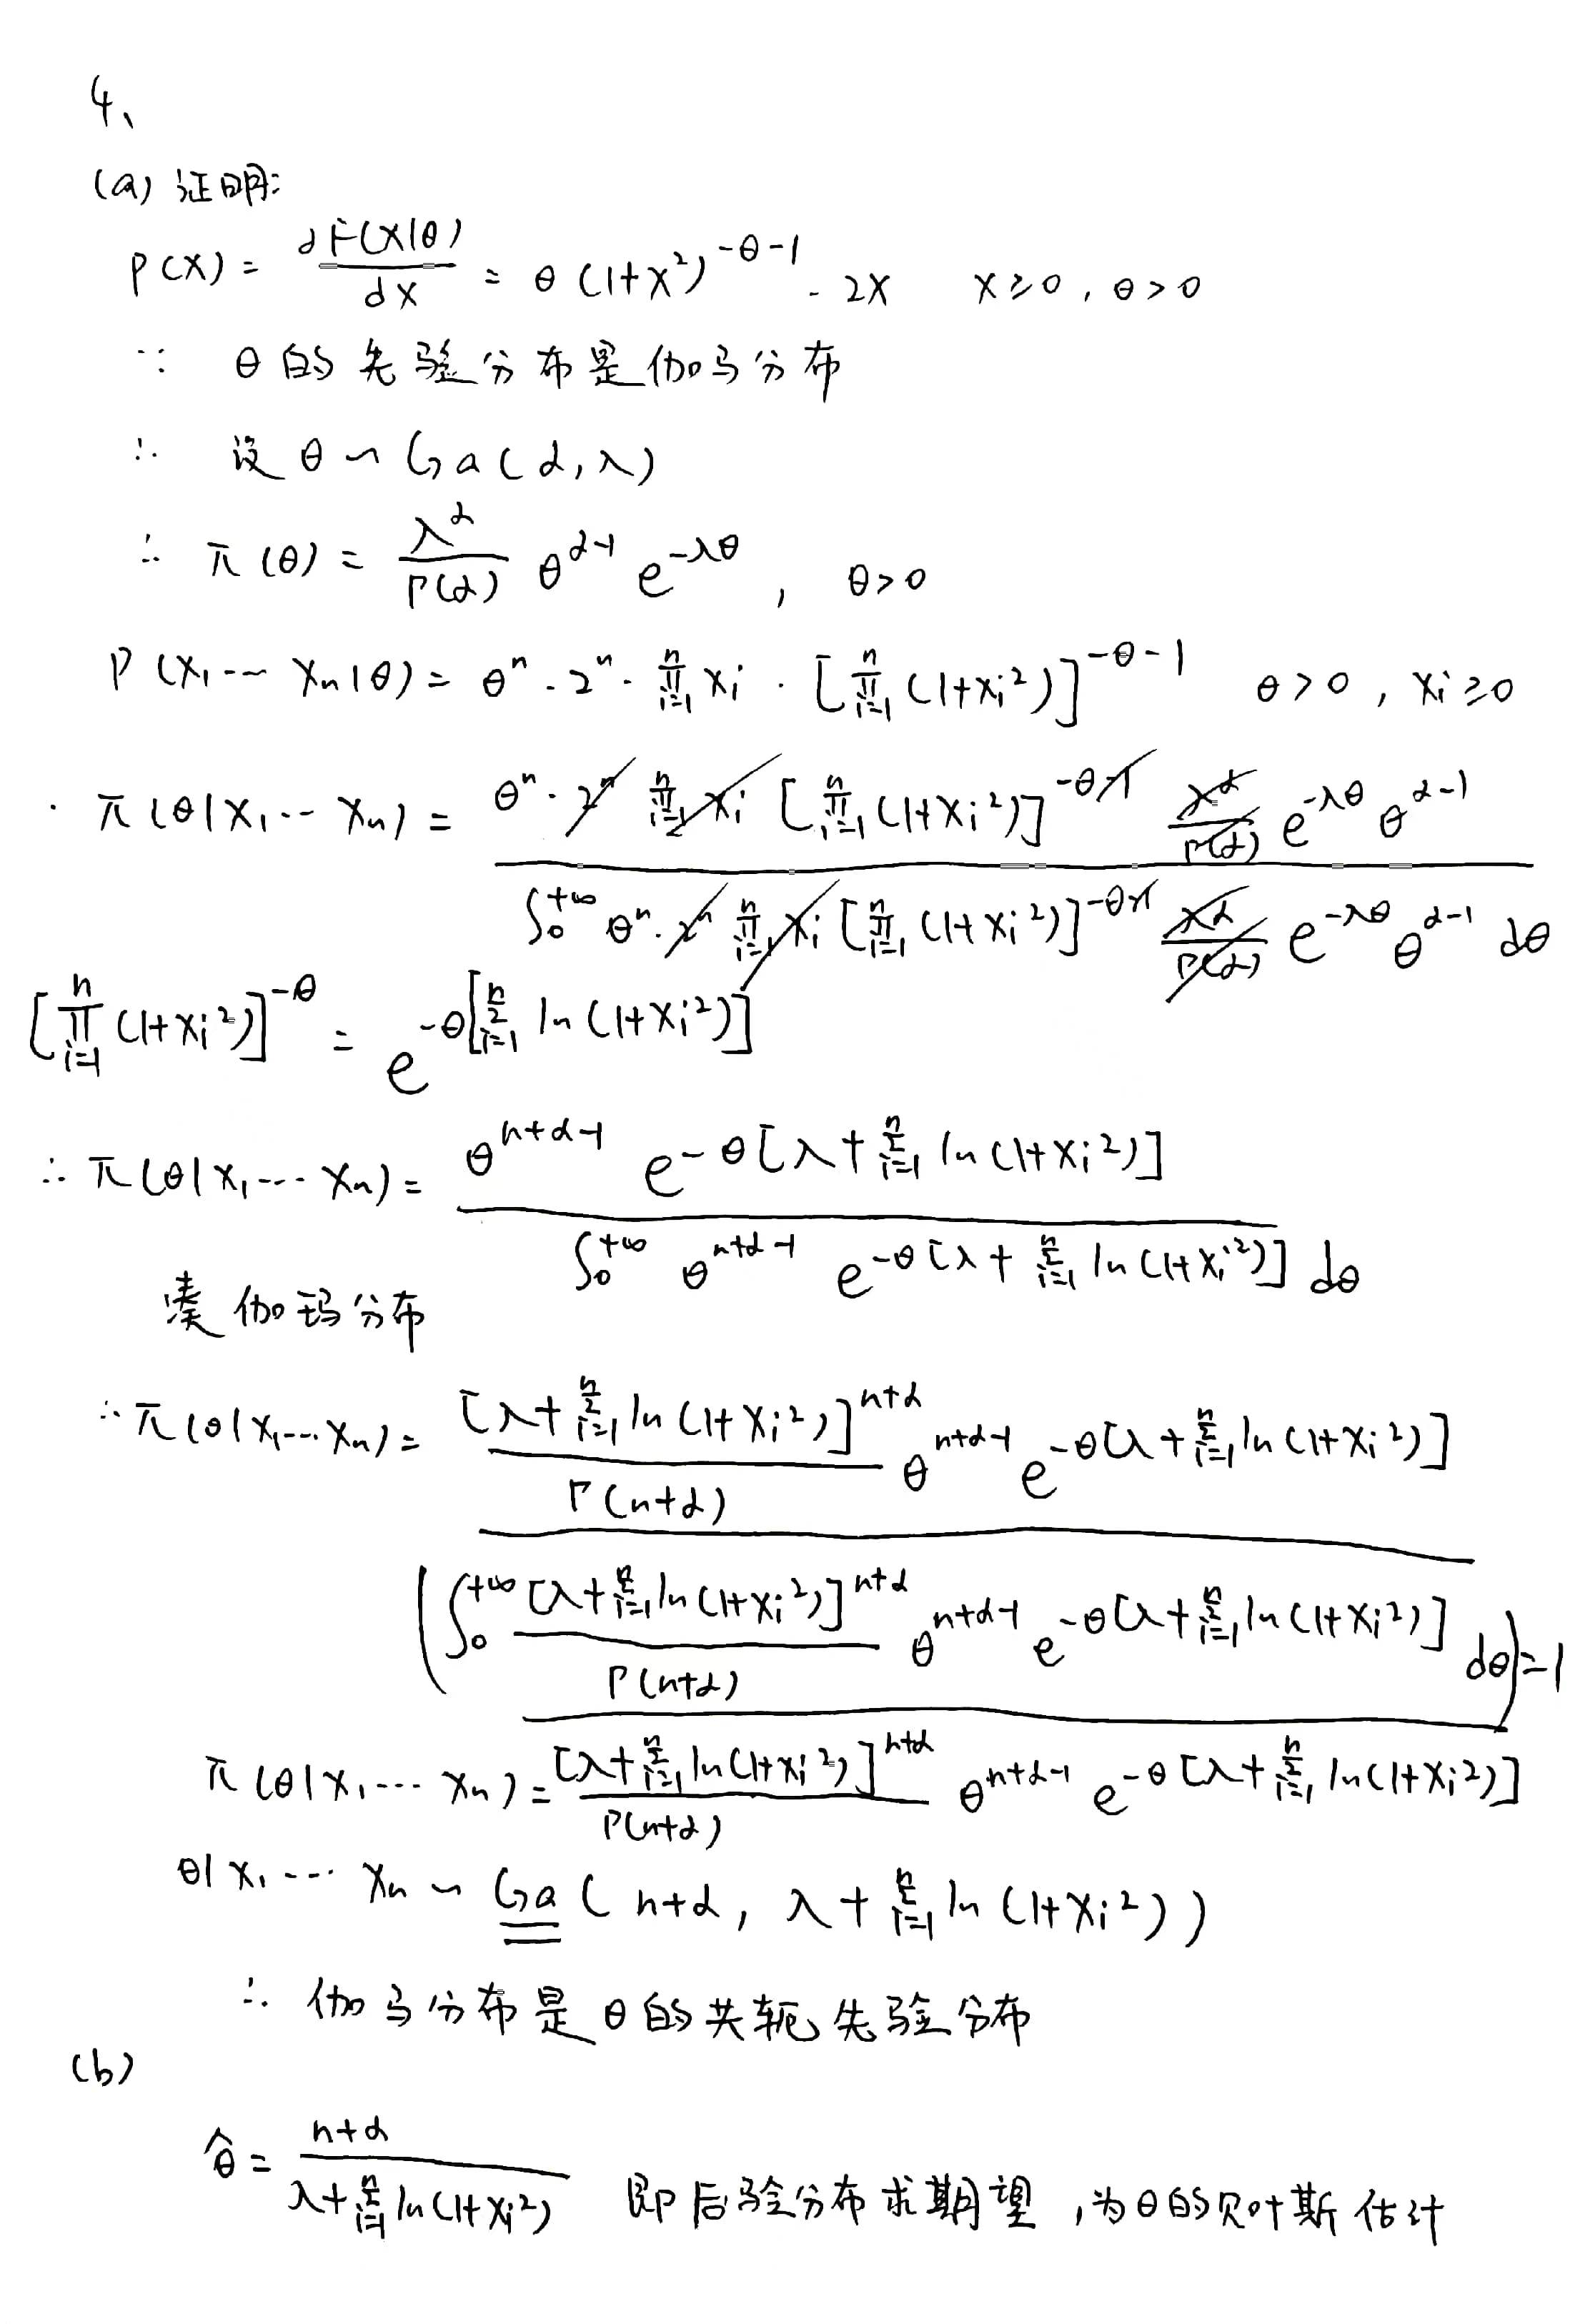 4、
(a) 证明:
P(X) = dF(X|θ)/dX = θ(1+X²)^(-θ-1) · 2X X≥0, θ>0
∵ θ的先验分布是伽马分布
∴ 设 θ ~ Ga(α, λ)
∴ π(θ) = λ^α/Γ(α) θ^(α-1) e^(-λθ), θ>0
P(X₁···Xₙ|θ) = θⁿ · 2ⁿ · ∏_{i=1}^{n} Xi · [∏_{i=1}^{n}(1+Xi²)]^(-θ-1) θ>0, Xi≥0
· π(θ|X₁···Xₙ) = θⁿ · 2ⁿ ∏_{i=1}^{n} Xi [∏_{i=1}^{n}(1+Xi²)]^(-θ-1) λ^α/Γ(α) e^(-λθ) θ^(α-1)
∫₀^{+∞} θⁿ · 2ⁿ ∏_{i=1}^{n} Xi [∏_{i=1}^{n}(1+Xi²)]^(-θ-1) λ^α/Γ(α) e^(-λθ) θ^(α-1) dθ
[∏_{i=1}^{n}(1+Xi²)]^(-θ) = e^(-θ[∑_{i=1}^{n} ln(1+Xi²)])
∴ π(θ|X₁···Xₙ) = θ^(n+α-1) e^(-θ[λ+∑_{i=1}^{n} ln(1+Xi²)])
∫₀^{+∞} θ^(n+α-1) e^(-θ[λ+∑_{i=1}^{n} ln(1+Xi²)]) dθ
凑伽玛分布
∴ π(θ|X₁···Xₙ) = [λ+∑_{i=1}^{n} ln(1+Xi²)]^(n+α)/Γ(n+α) θ^(n+α-1) e^(-θ[λ+∑_{i=1}^{n} ln(1+Xi²)])
(∫₀^{+∞} [λ+∑_{i=1}^{n} ln(1+Xi²)]^(n+α)/Γ(n+α) θ^(n+α-1) e^(-θ[λ+∑_{i=1}^{n} ln(1+Xi²)]) dθ)=1
π(θ|X₁···Xₙ) = [λ+∑_{i=1}^{n} ln(1+Xi²)]^(n+α)/Γ(n+α) θ^(n+α-1) e^(-θ[λ+∑_{i=1}^{n} ln(1+Xi²)])
θ|X₁···Xₙ ~ Ga(n+α, λ+∑_{i=1}^{n} ln(1+Xi²))
∴ 伽马分布是θ的共轭先验分布
(b)
θ̂ = (n+α)/(λ+∑_{i=1}^{n} ln(1+Xi²)) 即后验分布求期望,为θ的贝叶斯估计